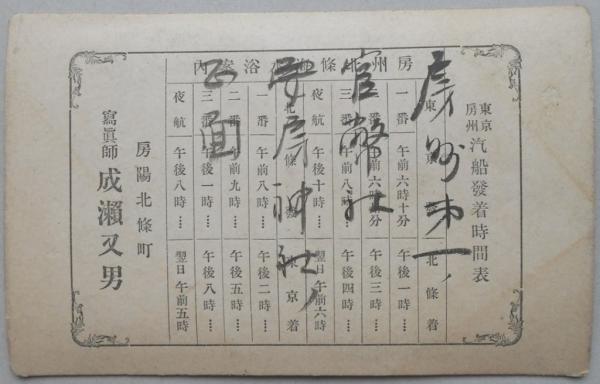 東京
房州
汽船發着時間表
房州北條 浴案內
東京 北條着
一番 午前六時十分…… 午後一時……
午前六時 分 午後三時……
三番 午前八時 午後四時……
夜航 午後十時…… 翌日午前六時
北條發 東京着
一番 午前八時…… 午後二時……
二番 午前九時…… 午後五時……
三番 午後一時…… 午後八時……
夜航 午後八時…… 翌日午前五時
房陽北條町
寫眞師 成瀨又男
房州第一ノ
官幣社
安房神社ノ
正面